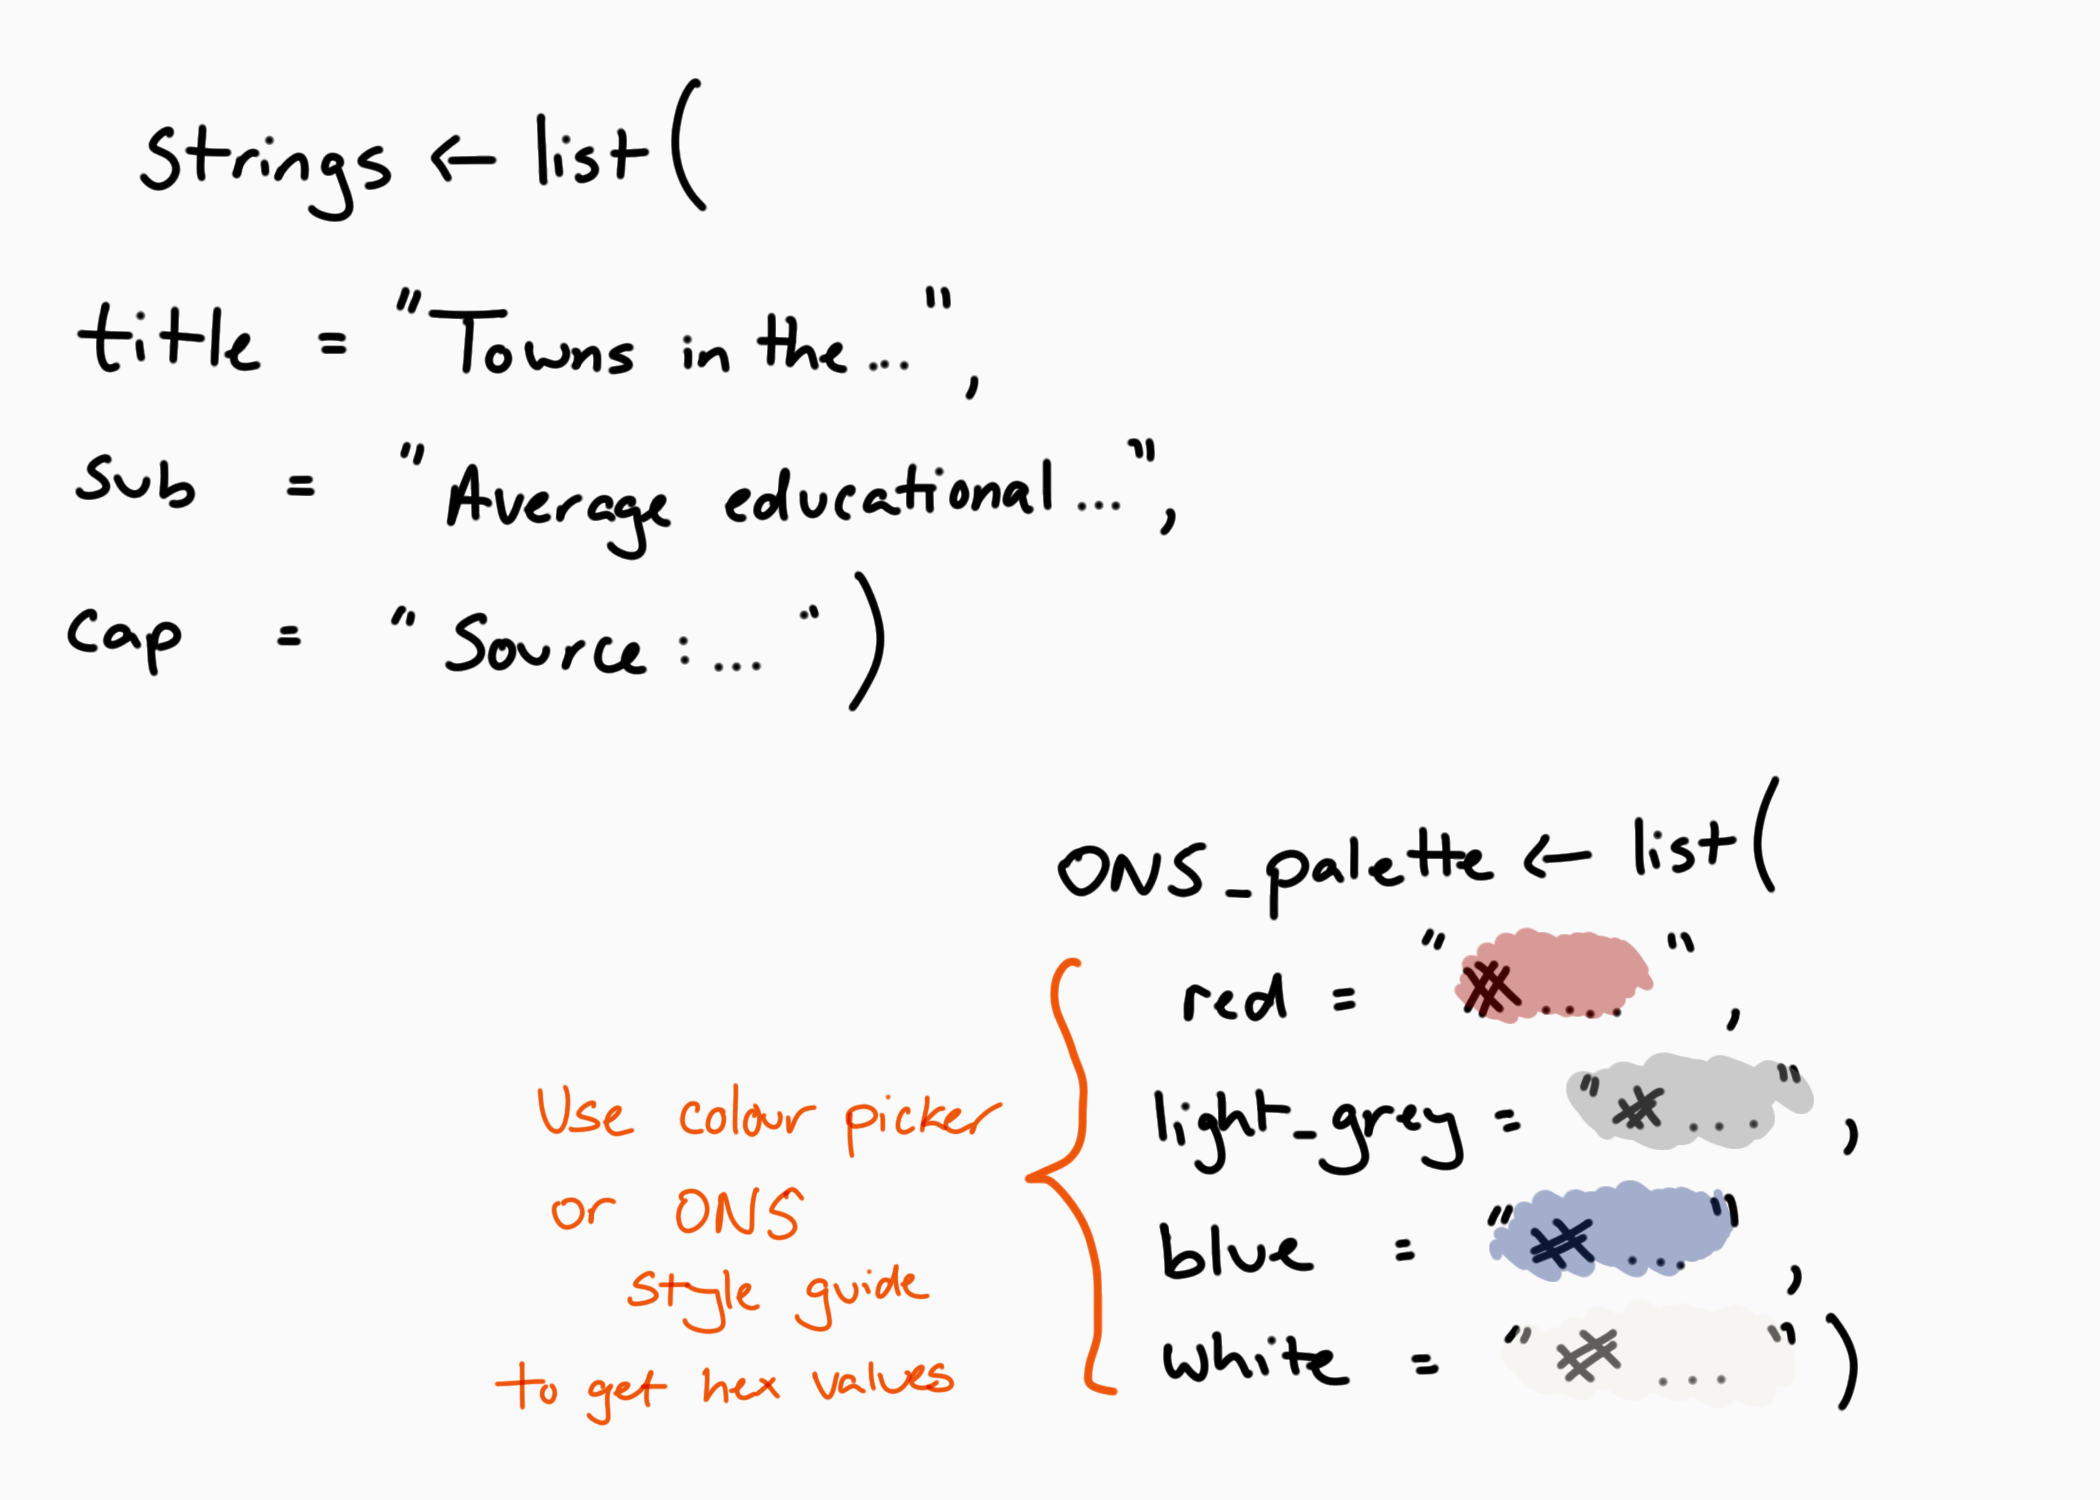 strings ← list(
title = "Towns in the ... ",
sub = "Average educational ... ",
cap = "Source : ... ")
ONS_palette ← list(
red = "# .... ",
light_grey = "# ... ",
blue = "# ... ",
white = "# ... ")
Use colour picker
or ONS
style guide
to get hex values